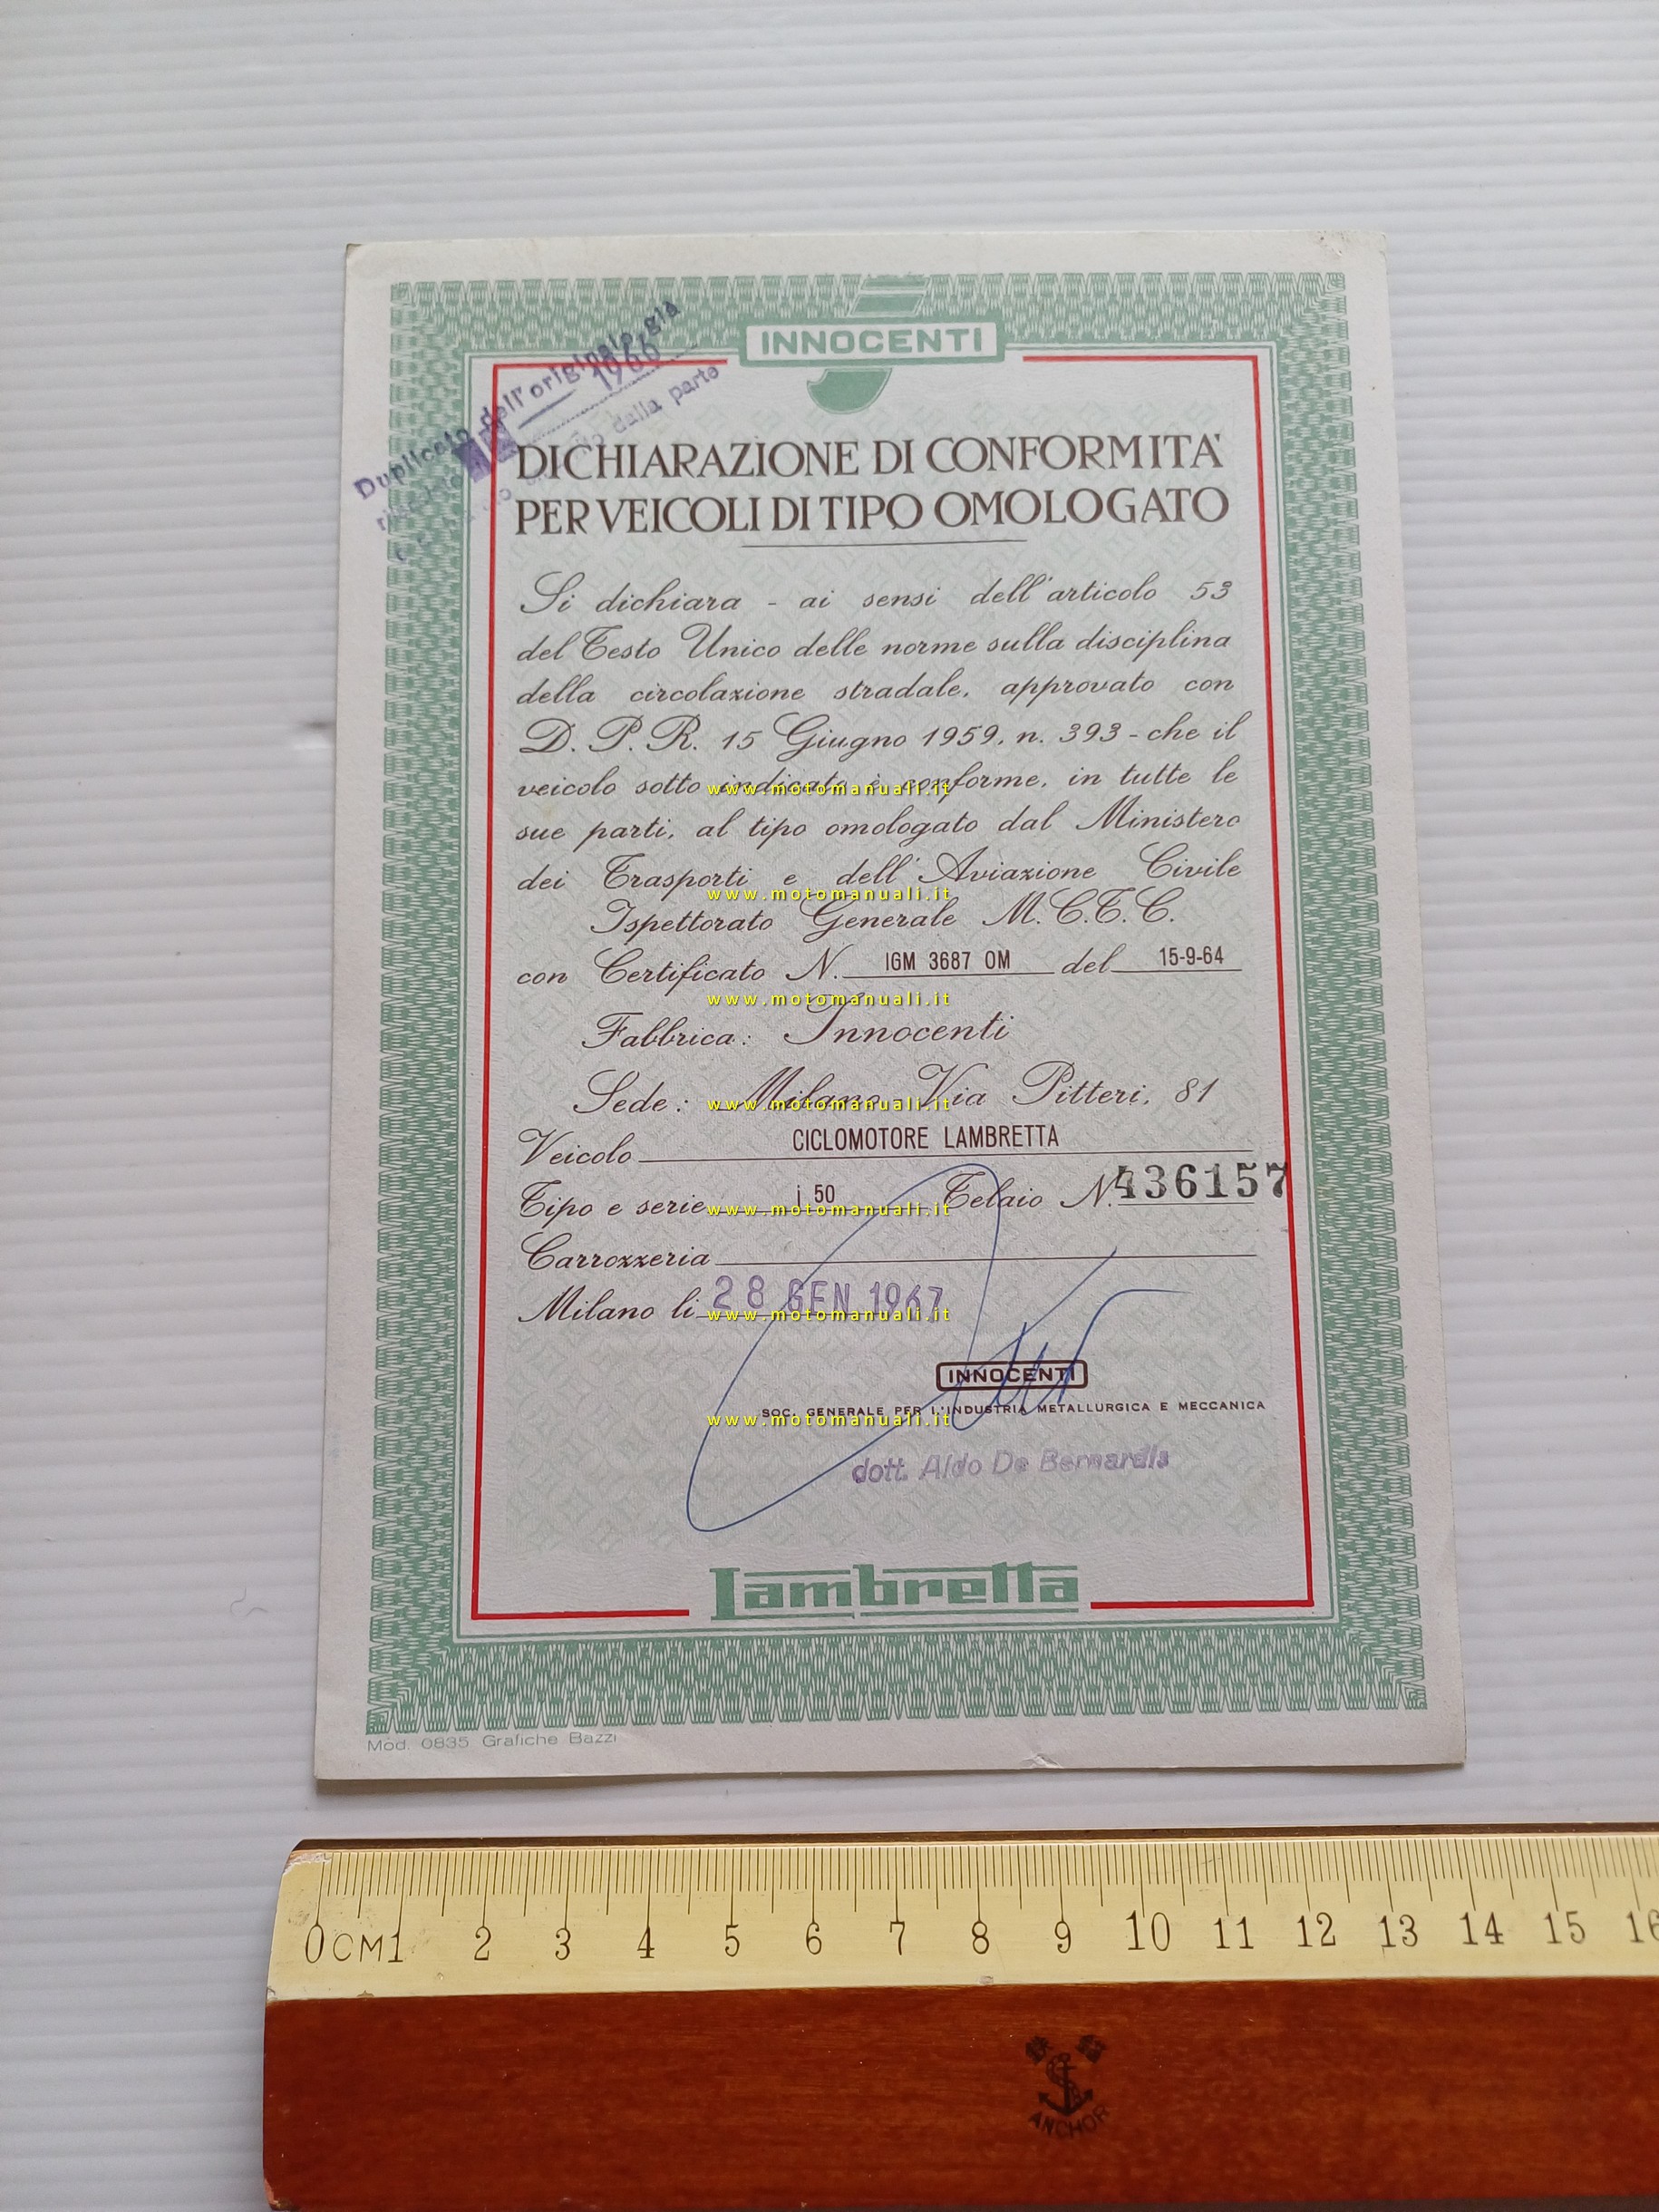 Duplicato dell'originale già
1966
dalla parte
INNOCENTI
DICHIARAZIONE DI CONFORMITA'
PER VEICOLI DI TIPO OMOLOGATO
Si dichiara - ai sensi dell'articolo 53
del Testo Unico delle norme sulla disciplina
della circolazione stradale, approvato con
D. P. R. 15 Giugno 1959, n. 393 - che il
veicolo sotto indicato è conforme, in tutte le
www.motomanuali.it
sue parti, al tipo omologato dal Ministero
dei Trasporti e dell'Aviazione Civile
www.motomanuali.it
Ispettorato Generale M.C.T.C.
con Certificato N. IGM 3687 OM del 15-9-64
www.motomanuali.it
Fabbrica: Innocenti
Sede: Milano Via Pitteri, 81
www.motomanuali.it
Veicolo CICLOMOTORE LAMBRETTA
Tipo e serie j 50 Telaio N. 436157
www.motomanuali.it
Carrozzeria
Milano li 28 GEN 1967
www.motomanuali.it
INNOCENTI
SOC. GENERALE PER L'INDUSTRIA METALLURGICA E MECCANICA
www.motomanuali.it
dott. Aldo De Bernardis
Lambretta
Mod. 0835 Grafiche Bazzi
0CM1 2 3 4 5 6 7 8 9 10 11 12 13 14 15 16
ANCHOR